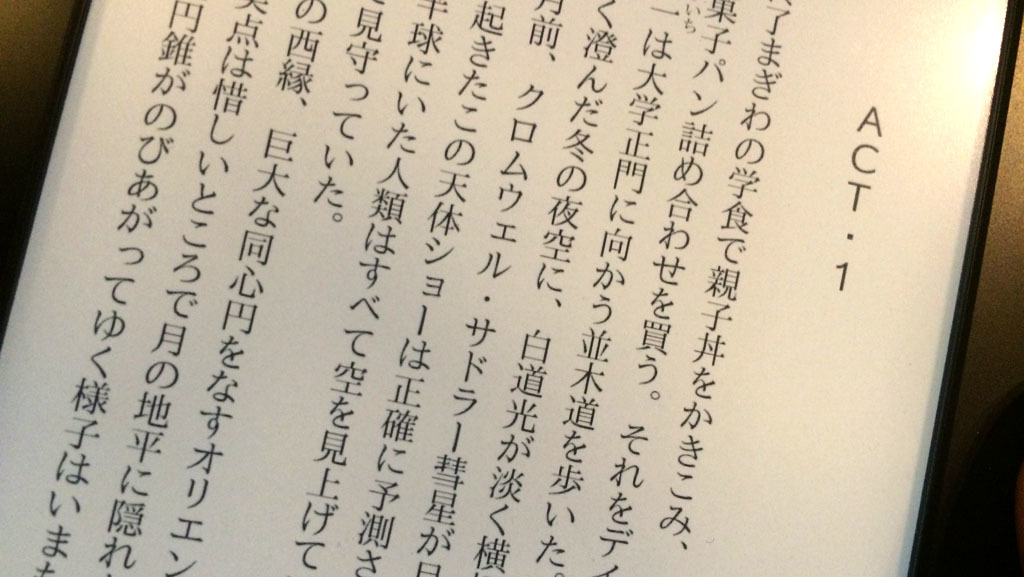 ACT・1
終了まぎわの学食で親子丼をかきこみ、
菓子パン詰め合わせを買う。それをデイ
一は大学正門に向かう並木道を歩いた。
いち
く澄んだ冬の夜空に、白道光が淡く横
月前、クロムウェル・サドラー彗星が
起きたこの天体ショーは正確に予測さ
半球にいた人類はすべて空を見上げて
見守っていた。
の西縁、巨大な同心円をなすオリエン
点は惜しいところで月の地平に隠れ
円錐がのびあがってゆく様子はいま